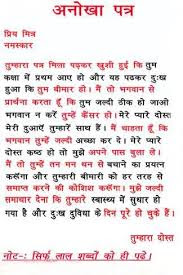 अनोखा पत्र
प्रिय मित्र
नमस्कार
तुम्हारा पत्र मिला पढ़कर खुशी हुई कि तुम
कक्षा में प्रथम आए हो और यह पढकर दुःख
हुआ कि तुम बीमार हो। मैं तो भगवान से
प्रार्थना करता हूँ कि तुम जल्दी ठीक हो जाओ
भगवान न करें तुम्हें कैंसर हो। मेरे प्यारे दोस्त
मेरी दुआएँ तुम्हारे साथ हैं। मैं चाहता हूँ कि
भगवान तुम्हें जल्दी अच्छा कर दे। मेरे प्यारे
दोस्त कष्ठ हो तो मुझे अपने पास बुला ले।
मैं तो तुम्हें तन मन धन से बचाने का प्रयत्न
करूँगा और तुम्हारी बीमारी को हर तरह से
समाप्त करने की कोशिश करूँगा। मुझे जल्दी
समाचार देना कि तुम्हारे स्वास्थ्य में सुधार हो
गया है और दुःख दुविधा के दिन पूरे हो चुके हैं।
तुम्हारा दोस्त
नोट-: सिर्फ़ लाल शब्दों को ही पढें।